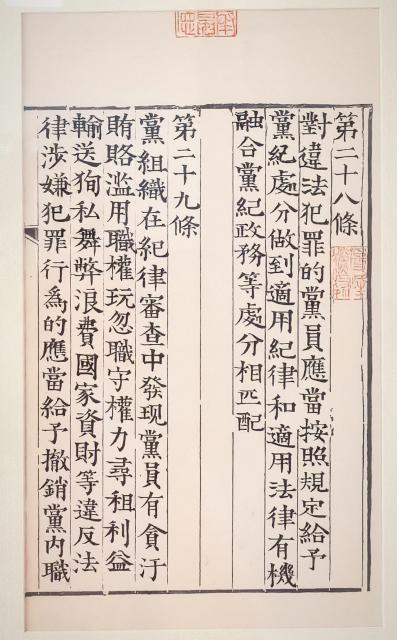 第二十八條
對違法犯罪的黨員應當按照規定給予
黨紀處分做到適用紀律和適用法律有機
融合黨紀政務等處分相匹配
第二十九條
黨組織在紀律審查中發现黨員有貪汙
賄賂滥用職權玩忽職守權力尋租利益
輸送徇私舞弊浪費國家資財等違反法
律涉嫌犯罪行為的應當給予撤銷黨内職